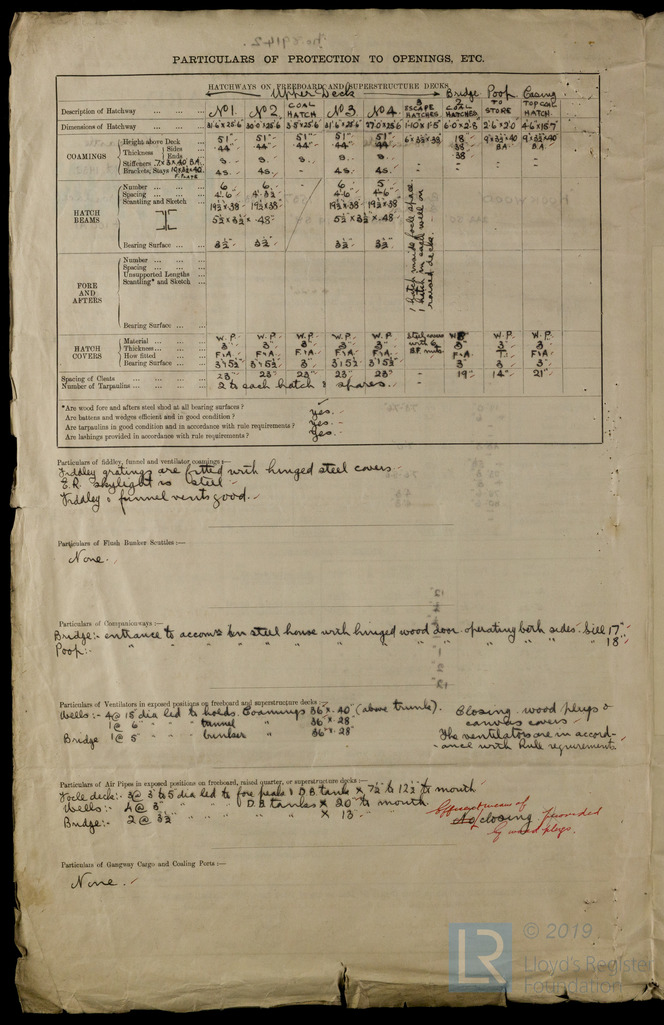 PARTICULARS OF PROTECTION TO OPENINGS, ETC.
HATCHWAYS ON FREEBOARD AND SUPERSTRUCTURE DECKS
Upper Deck Bridge Poop Casing
Description of Hatchway No 1 No 2 COAL HATCH No 3 No 4 3 ESCAPE HATCHES 2 COAL HATCHES TO STORE TOP COAL HATCH
Dimensions of Hatchway 31'6 x 25'6 30'0 x 25'6 3'5 x 25'6 31'6 x 25'6 27'0 x 25'6 1'10 x 1'5 6'0 x 2'8 2'6 x 2'0 4'6 x 15'7
COAMINGS
Height above Deck 51" 51" 51" 51" 51" 6 x 3½ x 38 18 9 x 3½ x 40 9 x 3½ x 40
Thickness Sides .44" .44" .44" .44" .44" - 38 B.A. B.A.
Ends 38
Stiffeners 7 x 3 x 40 B.A. S. S. - S. S.
Brackets, Stays 10 x 3½ x 40 F. PLATE 4s. 4s. - 4s. 4s.
HATCH BEAMS
Number 6 6 6 5
Spacing 4'6 4'3½ 4'6 4'6
Scantling and Sketch 19½ x 38 19½ x 38 19½ x 38 19½ x 38
5½ x 3½ x .48 5½ x 3½ x .48
Bearing Surface 3½" 3½" 3½" 3½"
1 hatch inside focle space, 1 hatch in each well on raised decks.
FORE AND AFTERS
Number
Spacing
Unsupported Lengths
Scantling* and Sketch
Bearing Surface
HATCH COVERS
Material W.P. W.P. W.P. W.P. W.P. Steel covers W.P. W.P. W.P.
Thickness 3" 3" 3" 3" 3" with 6 3" 3" 3"
How fitted F&A F&A F&A F&A F&A B.F. nuts F&A T. F&A
Bearing Surface 3 & 5½ 3 & 5½ 3" 3 & 5½ 3 & 5½ 3" 3 3"
Spacing of Cleats 23" 23" 23" 23" 23" - 19" 14" 21"
Number of Tarpaulins 2 to each hatch & spares.
*Are wood fore and afters steel shod at all bearing surfaces?
Are battens and wedges efficient and in good condition? yes.
Are tarpaulins in good condition and in accordance with rule requirements? yes.
Are lashings provided in accordance with rule requirements? yes.
Particulars of fiddley, funnel and ventilator coamings:—
Fiddley gratings are fitted with hinged steel covers
E.R. skylight is steel
Fiddley & funnel vents good.
Particulars of Flush Bunker Scuttles:—
None.
Particulars of Companionways:—
Bridge:- entrance to accomn in steel house with hinged wood door operating both sides. Sill 17"
Poop:- " " " " " " " " " " " " 18"
Particulars of Ventilators in exposed positions on freeboard and superstructure decks:—
Wells:- 4 @ 15 dia led to holds. Coamings 36" x .40" (above trunk). Closing wood plugs &
1 @ 6" " " tunnel " 36" x .28" canvas covers
Bridge 1 @ 5" " " bunker " 36" x .28" The ventilators are in accord-
-ance with Rule requirements
Particulars of Air Pipes in exposed positions on freeboard, raised quarter, or superstructure decks:—
Focle deck:- 3 @ 3" to 5 dia led to fore peak & D.B. tank x 7½ to 12½" to mouth
Wells:- 4 @ 3" " " D.B. tanks x 20" to mouth.
Bridge:- 2 @ 3½ " " " x 13" " " No closing
Efficient means of closing provided by wood plugs.
Particulars of Gangway Cargo and Coaling Ports:—
None.
LR
© 2019
Lloyd's Register
Foundation